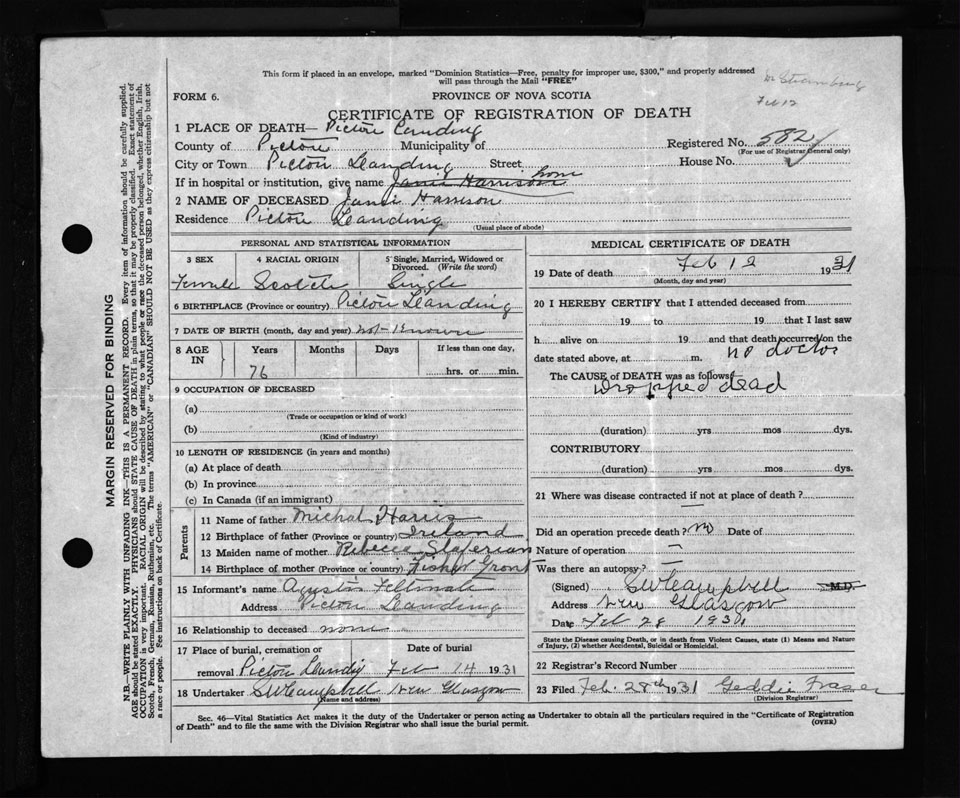 This form if placed in an envelope, marked "Dominion Statistics—Free, penalty for improper use, $300," and properly addressed
will pass through the Mail "FREE"
Feb 12
FORM 6.
PROVINCE OF NOVA SCOTIA
CERTIFICATE OF REGISTRATION OF DEATH
1 PLACE OF DEATH— Picton Landing
County of Picton Municipality of Registered No. 582
(For use of Registrar General only)
City or Town Picton Landing Street House No.
If in hospital or institution, give name Janie Harrison home
2 NAME OF DECEASED Janie Harrison
Residence Picton Landing
(Usual place of abode)
PERSONAL AND STATISTICAL INFORMATION
3 SEX 4 RACIAL ORIGIN 5 Single, Married, Widowed or Divorced. (Write the word)
Female Scotch Single
6 BIRTHPLACE (Province or country) Picton Landing
7 DATE OF BIRTH (month, day and year) not-Known
8 AGE IN Years Months Days If less than one day,
76 hrs. or min.
9 OCCUPATION OF DECEASED
(a)
(Trade or occupation or kind of work)
(b)
(Kind of industry)
10 LENGTH OF RESIDENCE (in years and months)
(a) At place of death
(b) In province
(c) In Canada (if an immigrant)
Parents
11 Name of father Michal Harris
12 Birthplace of father (Province or country) Ireland
13 Maiden name of mother Rebecca
14 Birthplace of mother (Province or country) Fisher Grant
15 Informant's name
Address Picton Landing
16 Relationship to deceased none
17 Place of burial, cremation or removal Picton Landig
Date of burial Feb 14 1931
18 Undertaker SW Campbell New Glasgow
(Name and address)
MEDICAL CERTIFICATE OF DEATH
19 Date of death Feb 12 1931
(Month, day and year)
20 I HEREBY CERTIFY that I attended deceased from
19 to 19 that I last saw
h alive on 19 and that death occurred on the
date stated above, at m. no doctor
The CAUSE of DEATH was as follows:
Dropped dead
(duration) yrs mos dys.
CONTRIBUTORY
(duration) yrs mos dys.
21 Where was disease contracted if not at place of death? —
Did an operation precede death? no Date of
Nature of operation —
Was there an autopsy? —
(Signed) SW Campbell M.D.
Address New Glasgow
Date Feb 28 1931
State the Disease causing Death, or in death from Violent Causes, state (1) Means and Nature
of Injury, (2) whether Accidental, Suicidal or Homicidal.
22 Registrar's Record Number
23 Filed Feb. 28th 1931 Geddie Fraser
(Division Registrar)
Sec. 46—Vital Statistics Act makes it the duty of the Undertaker or person acting as Undertaker to obtain all the particulars required in the "Certificate of Registration
of Death" and to file the same with the Division Registrar who shall issue the burial permit.
(OVER)
MARGIN RESERVED FOR BINDING
N.B.—WRITE PLAINLY WITH UNFADING INK—THIS IS A PERMANENT RECORD. Every item of information should be carefully supplied.
AGE should be stated EXACTLY. PHYSICIANS should STATE CAUSE OF DEATH in plain terms, so that it may be properly classified. Exact statement of
OCCUPATION is very important. RACIAL ORIGIN will be described by stating to what people or race the deceased person belonged, whether English, Irish,
Scotch, French, German, Russian, Ruthenian, etc. The terms "AMERICAN" or "CANADIAN" SHOULD NOT BE USED as they express citizenship but not
a race or people. See instructions on back of Certificate.